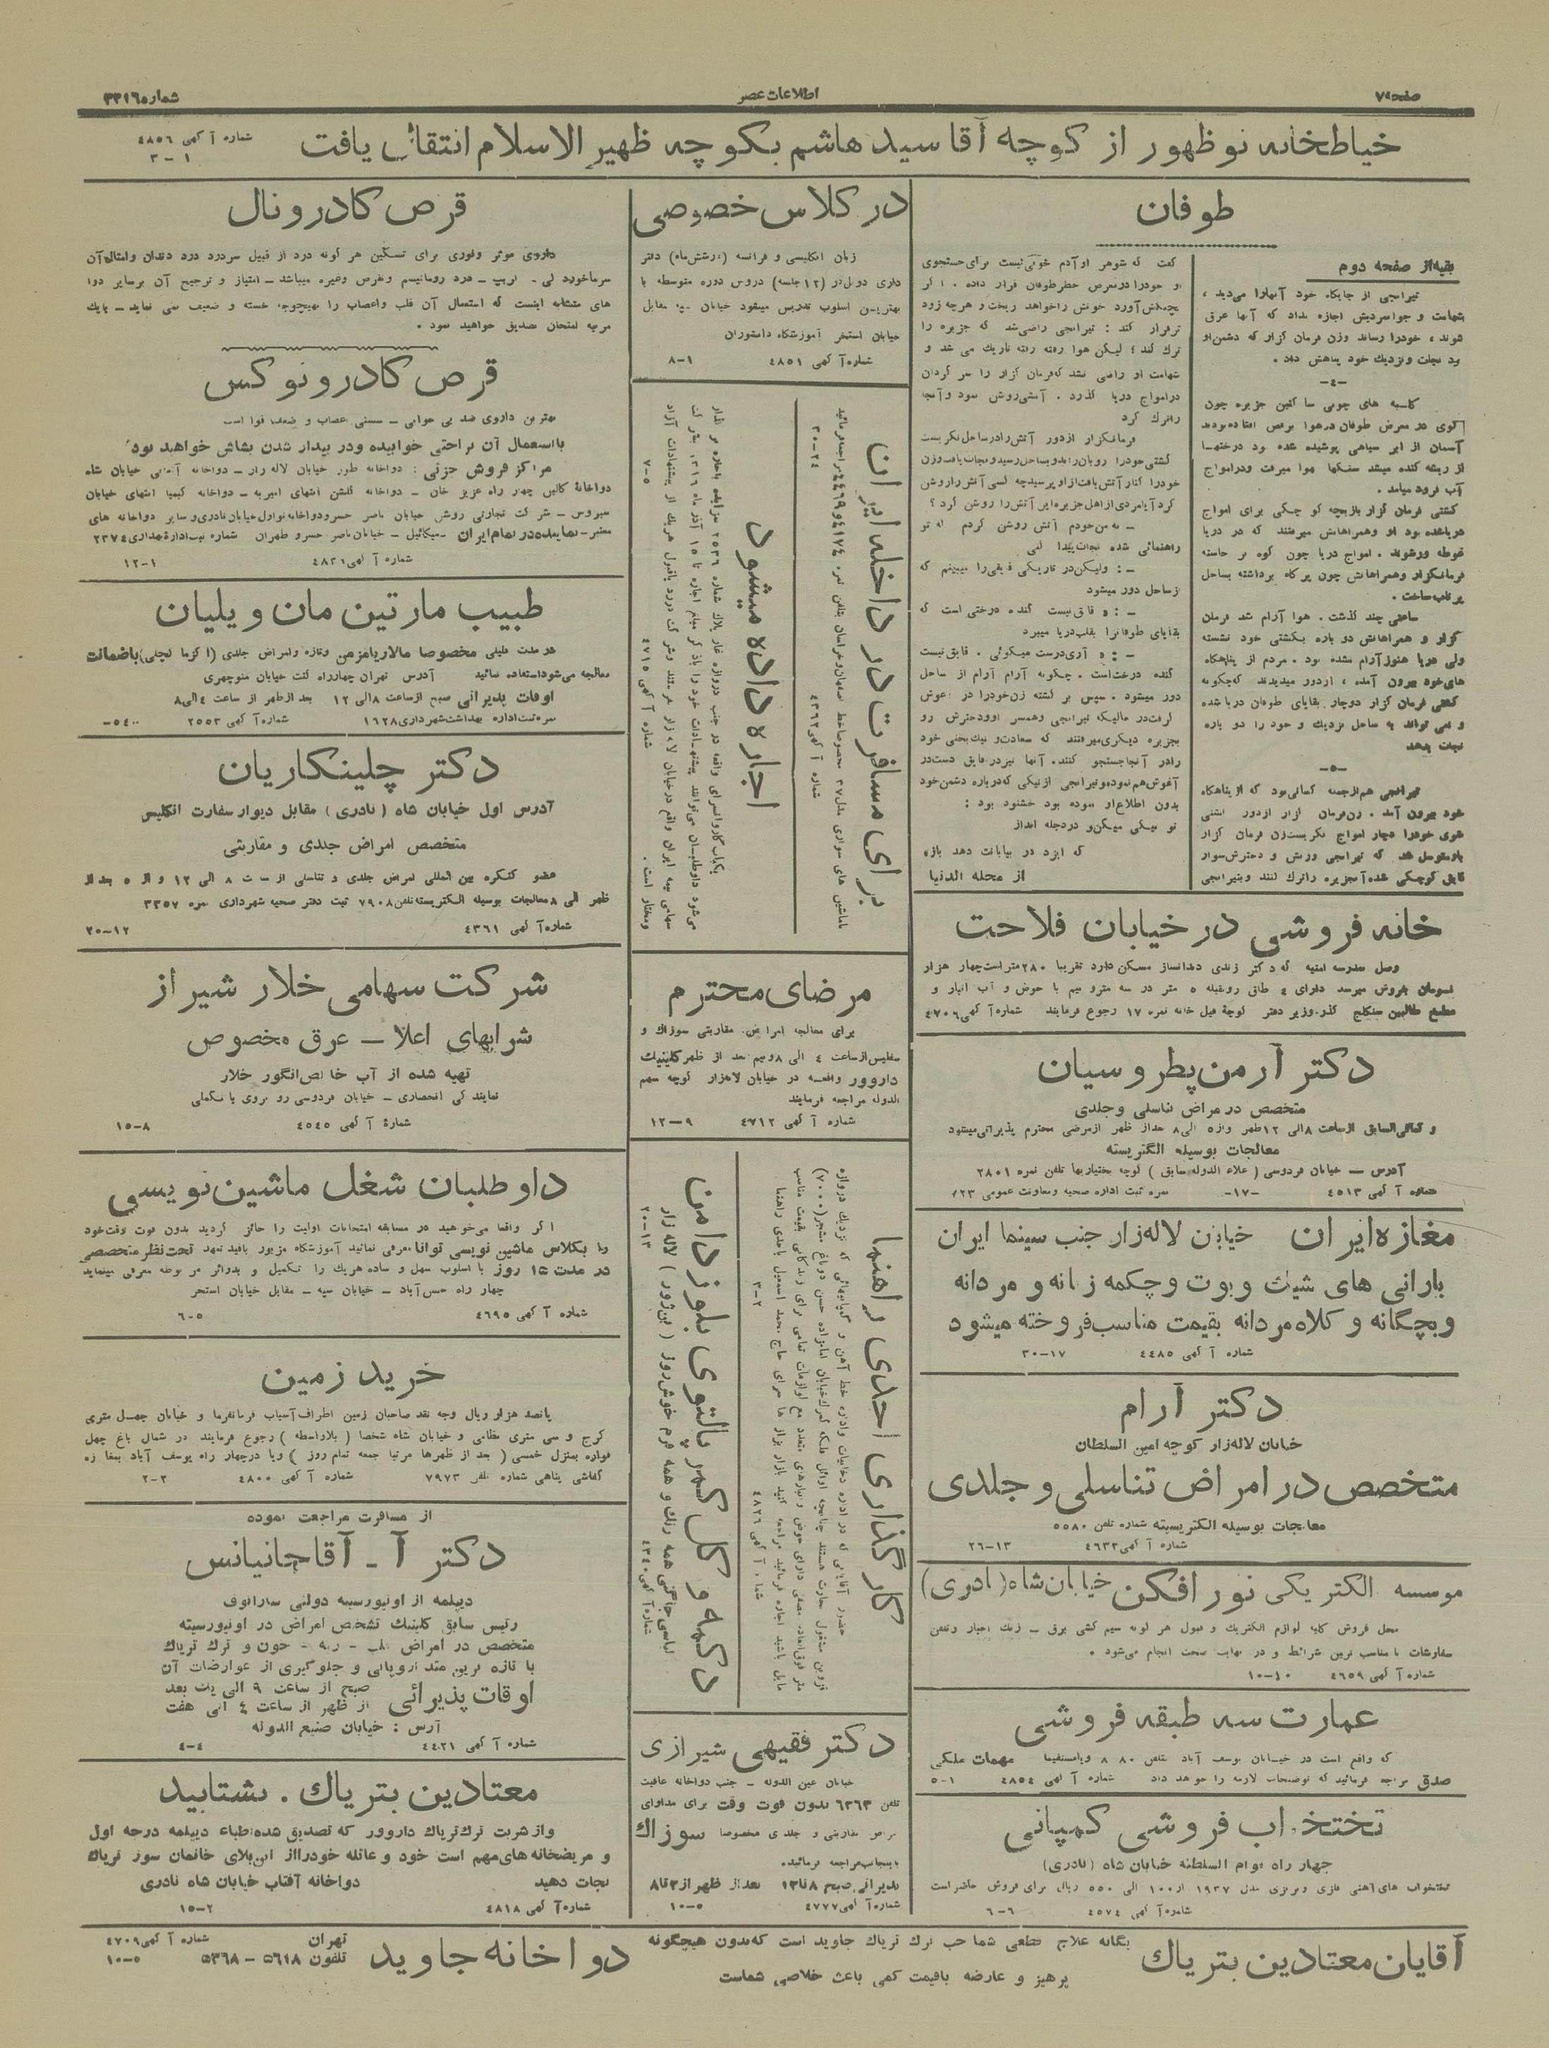 صفحه ۷
اطلاعات عصر
شماره ۳۳۱۶
خیاطخانه نوظهور از کوچه آقا سید هاشم بکوچه ظهیر الاسلام انتقال یافت
شماره آگهی ۴۸۵۶
۳-۱
طوفان
بقیه از صفحه دوم
تیرانجی از جایگاه خود آنهارا میدید ،
شهامت و جوانمردیش اجازه نداد که آنها غرق
شوند ، خودرا رساند وزن فرمان گزار که دشمن او
بود نجات و نزدیک خود پناهش داد .
-۴-
آسمان از ابر سیاهی پوشیده شده بود درختها
از ریشه کنده میشد سنگها هوا میرفت و درامواج
آب فرود میامد .
کشتی فرمان گزار بازیچه کوچکی برای امواج
دریا شده بود او وهمراهانش میرفتند که در دریا
غوطه ورشوند . امواج دریا چون کوه بر خاسته
فرمانگزار وهمراهانش چون پرکاه برداشته بساحل
پرتاب ساخت .
ساعتی چند گذشت . هوا آرام شد فرمان
گزار و همراهانش دو باره بکشتی خود نشسته
ولی دریا هنوز آرام نشده بود . مردم از پناهگاه
های خود بیرون آمده ، ازدور میدیدند که چگونه
کشتی فرمان گزار دوچار بقایای طوفان دریا شده
و نمی تواند به ساحل نزدیک و خود را دو باره
نجات بدهد
-۵-
تیرانجی هم ازجمله کسانی بود که از پناهگاه
خود بیرون آمد . زن فرمان گزار ازدور کشتی
شوی خودرا دچار امواج نگریست زن فرمان گزار
باو متوسل شد که تیرانجی وزنش و دخترش سوار
قایق کوچکی شده آنجزیره راترک کنند وتیرانجی
گفت که شوهر او آدم خوبی نیست برای جستجوی
او خودرا درمعرض خطر طوفان قرار داده . اگر
بچنگش آورد خونش را خواهد ریخت و هرچه زود
تر فرار کند : تیرانجی راضی شد که جزیره را
ترک کند ؛ لیکن هوا رفته رفته تاریک می شد و
شهامت او راضی نشد که فرمان گزار را سر گردان
درامواج دریا گذارد . آتشی روشن نمود و آنجا
راترک کرد
فرمانگزار ازدور آتش رادر ساحل نگریست
کشتی خودرا روبان راند وبساحل رسید ونجات یافت وزن
خودرا کنار آتش یافت از او پرسید چه کسی آتش را روشن
کرد آیا مردی از اهل جزیره این آتش را روشن کرد ؟
- نه من خودم آتش روشن کردم که تو
راهنمائی شده نجات پیدا کنی
- : ولیکن در تاریکی قایقی را میبینم که
از ساحل دور میشود
- : نه قایق نیست کنده درختی است که
بقایای طوفان را بقلب دریا میبرد
- : نه آری درست میگوئی . قایق نیست
کنده درخت است . چگونه آرام آرام از ساحل
دور میشود . سپس بر گشته زن خودرا در آغوش
گرفت در حالیکه تیرانجی وهمسر او ودخترش رو
بجزیره دیگری میرفتند که سعادت و نیک بختی خود
رادر آنجا جستجو کنند . آنها نیز در قایق دست در
آغوش هم نموده وتیرانجی از نیکی که درباره دشمن خود
بدون اطلاع او نموده بود خشنود بود :
تو نیکی میکن و در دجله انداز
که ایزد در بیابانت دهد باز
از مجله الدنیا
خانه فروشی در خیابان فلاحت
وصل مدرسه امنیه که دکتر زندی دندانساز مسکن دارد تقریبا ۲۸۰ متر است چهار هزار
شماره آگهی ۴۷۰۶
دکتر آرمن پطروسیان
متخصص در مراض تناسلی و جلدی
و کمافی السابق از ساعت ۸ الی ۱۲ ظهر واز ۵ الی ۸ بعداز ظهر از مرضی محترم پذیرائی میشود
معالجات بوسیله الکتریسته
آدرس - خیابان فردوسی ( علاء الدوله سابق ) کوچه بختیاریها تلفن نمره ۲۸۰۱
شماره آگهی ۴۵۱۳
-۱۷-
نمره ثبت اداره صحیه ومعاونت عمومی ۷۲۳
مغازه ایران خیابان لاله زار جنب سینما ایران
بارانی های شیک و بوت و چکمه زنانه و مردانه
و بچگانه و کلاه مردانه بقیمت مناسب فروخته میشود
شماره آگهی ۴۴۸۵
۳۰-۱۷
دکتر آرام
خیابان لاله زار کوچه امین السلطان
متخصص در امراض تناسلی و جلدی
معالجات بوسیله الکتریسیته شماره تلفن ۵۵۸۰
شماره آگهی ۴۶۳۲
۲۶-۱۳
موسسه الکتریکی نور افکن خیابان شاه (نادری)
محل فروش کلیه لوازم الکتریک و قبول هر گونه سیم کشی برق - زنگ اخبار وتلفن
سفارشات با مناسب ترین شرائط و در نهایت صحت انجام می شود .
شماره آگهی ۴۶۵۹
۱۰-۱۰
عمارت سه طبقه فروشی
صدق مراجعه فرمائید که توضیحات لازمه را خواهد داد
شماره آگهی ۴۸۵۴
۵-۱
تختخواب فروشی کمپانی
چهار راه قوام السلطنه خیابان شاه (نادری)
تختخواب های آهنی فلزی و برنزی مدل ۱۹۳۷ از ۱۰۰ الی ۵۵۰ ریال برای فروش حاضر است
شماره آگهی ۴۵۷۴
۶-۶
در کلاس خصوصی
زبان انگلیسی و فرانسه (در شش ماه) دفتر
داری دوبل در (۱۲ جلسه) دروس دوره متوسطه با
بهترین اسلوب تدریس میشود خیابان سپه مقابل
خیابان استخر آموزشگاه دانشوران
شماره آگهی ۴۸۵۱
۸-۱
برای مسافرت در داخله ایران
با ماشین های سواری مدل ۳۷ مخصوصا خط اصفهان وخراسان بتلفن نمره ۴۱۷۴ و ۴۴۶۹ مراجعه فرمائید
شماره آگهی ۴۳۶۲
۳۰-۲۴
اجاره داده میشود
می شود داوطلبان می توانند پیشنهادات خود را با ذکر مبلغ اجاره تا ۱۵ آذر ماه ۱۳۱۶ بشرکت
سهامی پنبه ایران واقع در خیابان لاله زار بفرستند وشرکت در رد یا قبول هریک از پیشنهادات آزاد
ومختار است .
شماره آگهی ۴۷۱۵
۷-۵
مرضای محترم
برای معالجه امراض مقاربتی سوزاک و
سفلیس از ساعت ۴ الی ۸ ونیم بعد از ظهر کلینیک
داروور واقعه در خیابان لاله زار کوچه سهم
الدوله مراجعه فرمایند
شماره آگهی ۴۷۱۲
۱۲-۹
کارگذاری احدی راهنما
شماره آگهی ۴۸۲۶
۳-۲
دکمه و گل کمر پالتوی بلوز دامن
لباس جاکتی همه رنگ و همه فرم خوش دوز ( بن ژور ) لاله زار
شماره آگهی ۴۳۴۰
۲۰-۱۳
دکتر فقیهی شیرازی
خیابان عین الدوله - جنب دواخانه عافیت
تلفن ۶۳۶۳ بدون فوت وقت برای مداوای
امراض مقاربتی و جلدی مخصوصا سوزاک
باینجانب مراجعه فرمائید .
پذیرائی صبح ۸ تا ۱۲ بعد از ظهر از ۳ تا ۸
شماره آگهی ۴۷۷۷
۱۰-۵
قرص کادرونال
داروی موثر وفوری برای تسکین هر گونه درد از قبیل سردرد درد دندان وامثال آن
سرماخوردگی . گریپ - درد روماتیسم ونقرس وغیره میباشد - امتیاز و ترجیح آن برسایر دوا
های مشابه اینست که استعمال آن قلب واعصاب را بهیچوجه خسته و ضعیف نمی نماید - بایک
مرتبه امتحان تصدیق خواهید نمود .
قرص کادرونوکس
بهترین داروی ضد بی خوابی - سستی اعصاب و ضعف قوا است
بااستعمال آن براحتی خوابیده ودر بیدار شدن بشاش خواهید بود
مراکز فروش جزئی : دواخانه نظر خیابان لاله زار - دواخانه آلمانی خیابان شاه
سیروس - شرکت تجارتی روشن خیابان ناصر خسرو دواخانه نو اول خیابان نادری و سایر دواخانه های
معتبر - نماینده در تمام ایران - میکائیل - خیابان ناصر خسرو طهران شماره ثبت اداره بهداری ۲۳۷۴
شماره آگهی ۴۸۳۱
۱۲-۱
طبیب مارتین مان و یلیان
در مدت قلیلی مخصوصا مالاریا مزمن وتازه وامراض جلدی (اکزما کچلی) باضمانت
معالجه می شود استفاده نمائید آدرس تهران چهارراه کنت خیابان منوچهری
اوقات پذیرائی صبح از ساعت ۸ الی ۱۲ بعد از ظهر از ساعت ۴ الی ۸
نمره ثبت اداره بهداشت شهرداری ۱۶۲۸
شماره آگهی ۲۵۵۳
دکتر چلینکاریان
آدرس اول خیابان شاه (نادری) مقابل دیوار سفارت انگلیس
متخصص امراض جلدی و مقاربتی
عضو کنگره بین المللی امراض جلدی و تناسلی از ساعت ۸ الی ۱۲ و از ۵ بعد از
ظهر الی ۸ معالجات بوسیله الکتریسته تلفن ۷۹۰۸ ثبت دفتر صحیه شهرداری نمره ۳۳۵۷
شماره آگهی ۴۳۶۱
۲۰-۱۲
شرکت سهامی خلار شیراز
شرابهای اعلا - عرق مخصوص
تهیه شده از آب خالص انگور خلار
نمایندگی انحصاری - خیابان فردوسی رو بروی بانک ملی
شماره آگهی ۴۵۴۵
۱۵-۸
داوطلبان شغل ماشین نویسی
اگر واقعا می خواهید در مسابقه امتحانات اولیت را حائز گردید بدون فوت وقت خود
را بکلاس ماشین نویسی توانا معرفی نمائید آموزشگاه مزبور باقید تعهد تحت نظر متخصصی
در مدت ۱۵ روز با اسلوب سهل و ساده هریک را تکمیل و بدوائر مربوطه معرفی مینماید
چهار راه حسن آباد - خیابان سپه - مقابل خیابان استخر
شماره آگهی ۴۶۹۵
۶-۵
خرید زمین
پانصد هزار ریال وجه نقد صاحبان زمین اطراف آسیاب فرمانفرما و خیابان چهل متری
کرج و سی متری نظامی و خیابان شاه شخصا ( بلاواسطه ) رجوع فرمایند در شمال باغ چهل
فواره بمنزل خمسی ( بعد از ظهرها مرتبا جمعه تمام روز ) ویا در چهار راه یوسف آباد بمغازه
کفاشی پناهی شماره تلفن ۷۹۷۳
شماره آگهی ۴۸۰۰
۲-۲
از مسافرت مراجعت نموده
دکتر آ - آقاجانیانس
دیپلمه از اونیورسیته دولتی ساراتوف
رئیس سابق کلینیک تشخیص امراض در اونیورسیته
متخصص در امراض قلب - ریه - خون و ترک تریاک
با تازه ترین متد اروپائی و جلوگیری از عوارضات آن
اوقات پذیرائی صبح از ساعت ۹ الی یک بعد
از ظهر از ساعت ۴ الی هفت
آدرس : خیابان صنیع الدوله
شماره آگهی ۴۴۲۱
۴-۴
معتادین بتریاک . بشتابید
واز شربت ترک تریاک داروور که تصدیق شده اطباء دیپلمه درجه اول
و مریضخانه های مهم است خود و عائله خودرا از این بلای خانمان سوز تریاک
نجات دهید دواخانه آفتاب خیابان شاه نادری
شماره آگهی ۴۸۱۸
۱۵-۲
آقایان معتادین بتریاک
یگانه علاج قطعی شما حب ترک تریاک جاوید است که بدون هیچگونه
پرهیز و عارضه باقیمت کمی باعث خلاصی شماست
دواخانه جاوید
تهران
تلفون ۵۶۱۸ - ۵۳۶۸
شماره آگهی ۴۷۰۹
۱۰-۵